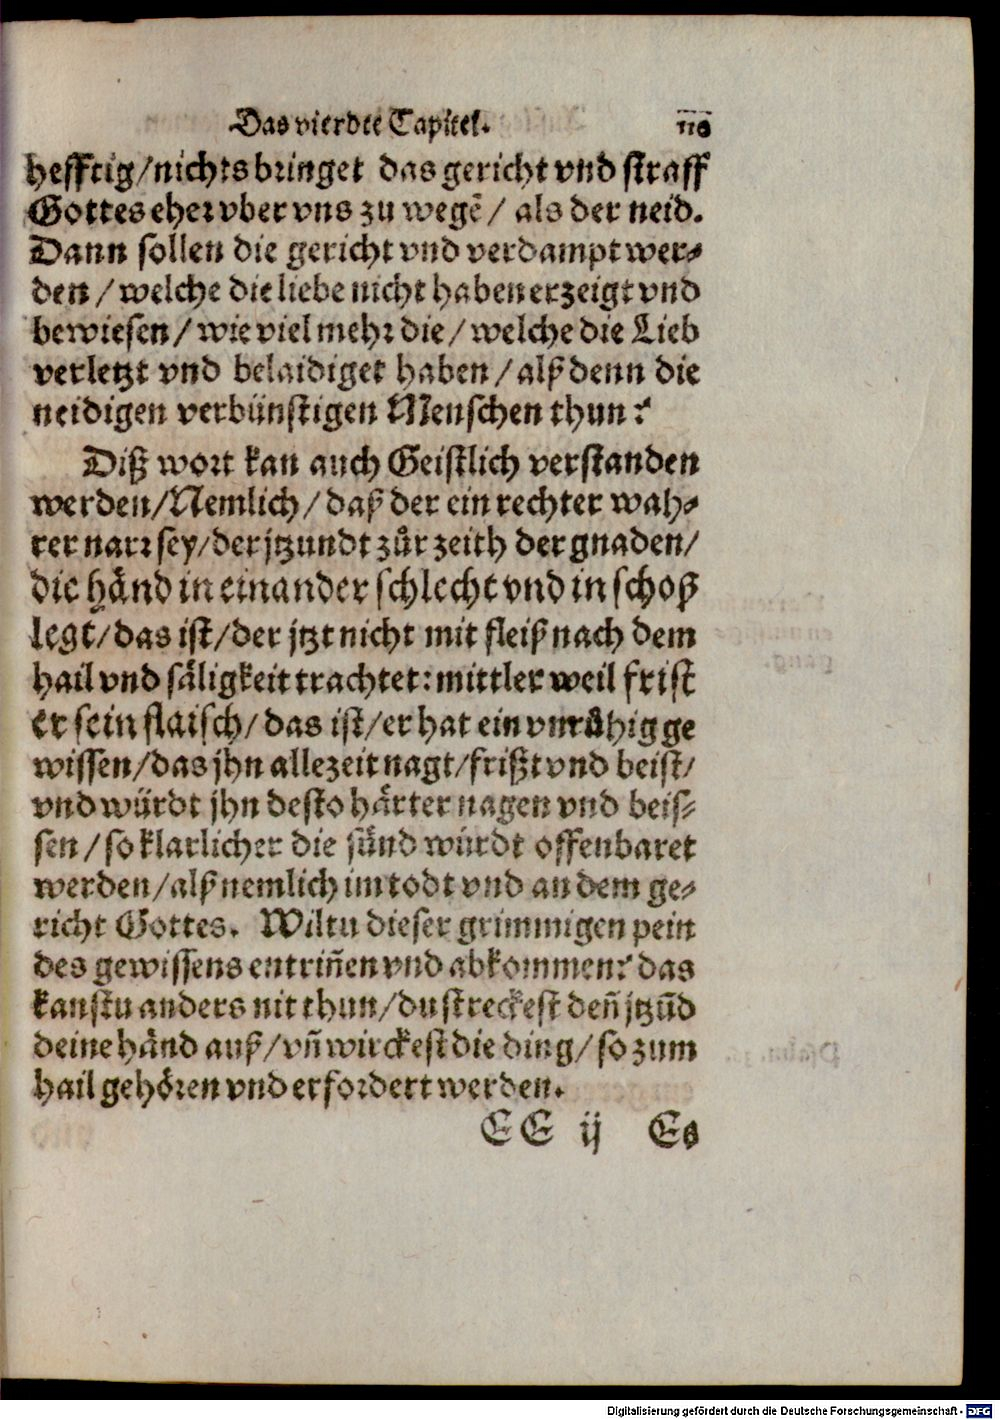 Das vierdte Capitel. 110
hefftig/nichts bringet das gericht vnd straff
Gottes eher vber vns zu wegē/ als der neid.
Dann sollen die gericht vnd verdampt wer⸗
den/welche die liebe nicht haben erzeigt vnd
bewiesen/wie viel mehr die/welche die Lieb
verletzt vnd belaidiget haben/alß denn die
neidigen verbünstigen Menschen thun?
Diß wort kan auch Geistlich verstanden
werden/Nemlich/daß der ein rechter wah⸗
rer narr sey/der jtzundt zůr zeith der gnaden/
die hånd in einander schlecht vnd in schoß
legt/das ist/der jtzt nicht mit fleiß nach dem
hail vnd såligkeit trachtet: mittler weil frist
er sein flaisch/das ist/er hat ein vnrůhig ge
wissen/das jhn allezeit nagt/frißt vnd beist/
vnd würdt jhn desto hårter nagen vnd beis⸗
sen/so klarlicher die sünd würdt offenbaret
werden/alß nemlich im todt vnd an dem ge⸗
richt Gottes. Wiltu dieser grimmigen pein
des gewissens entriñen vnd abkommen? das
kanstu anders nit thun/du streckest deñ jtzūd
deine hånd auß/vñ wirckest die ding/so zum
hail gehören vnd erfordert werden.
EE ij Es
Digitalisierung gefördert durch die Deutsche Forschungsgemeinschaft - DFG